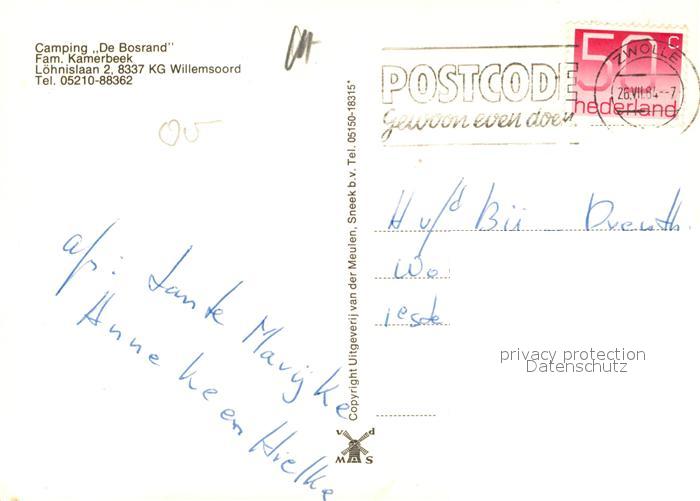 Camping ,,De Bosrand"
Fam. Kamerbeek
Löhnislaan 2, 8337 KG Willemsoord
Tel. 05210-88362
50 c
nederland
ZWOLLE
26.VII.84.--7
POSTCODE
gewoon even doen
Copyright Uitgeverij van der Meulen, Sneek b.v. Tel. 05150-18315*
H v/d Bij Drenth.
Wo
1e ste
privacy protection
Datenschutz
afz. tante Marijke
Anne Keen Hielke
v d
M S